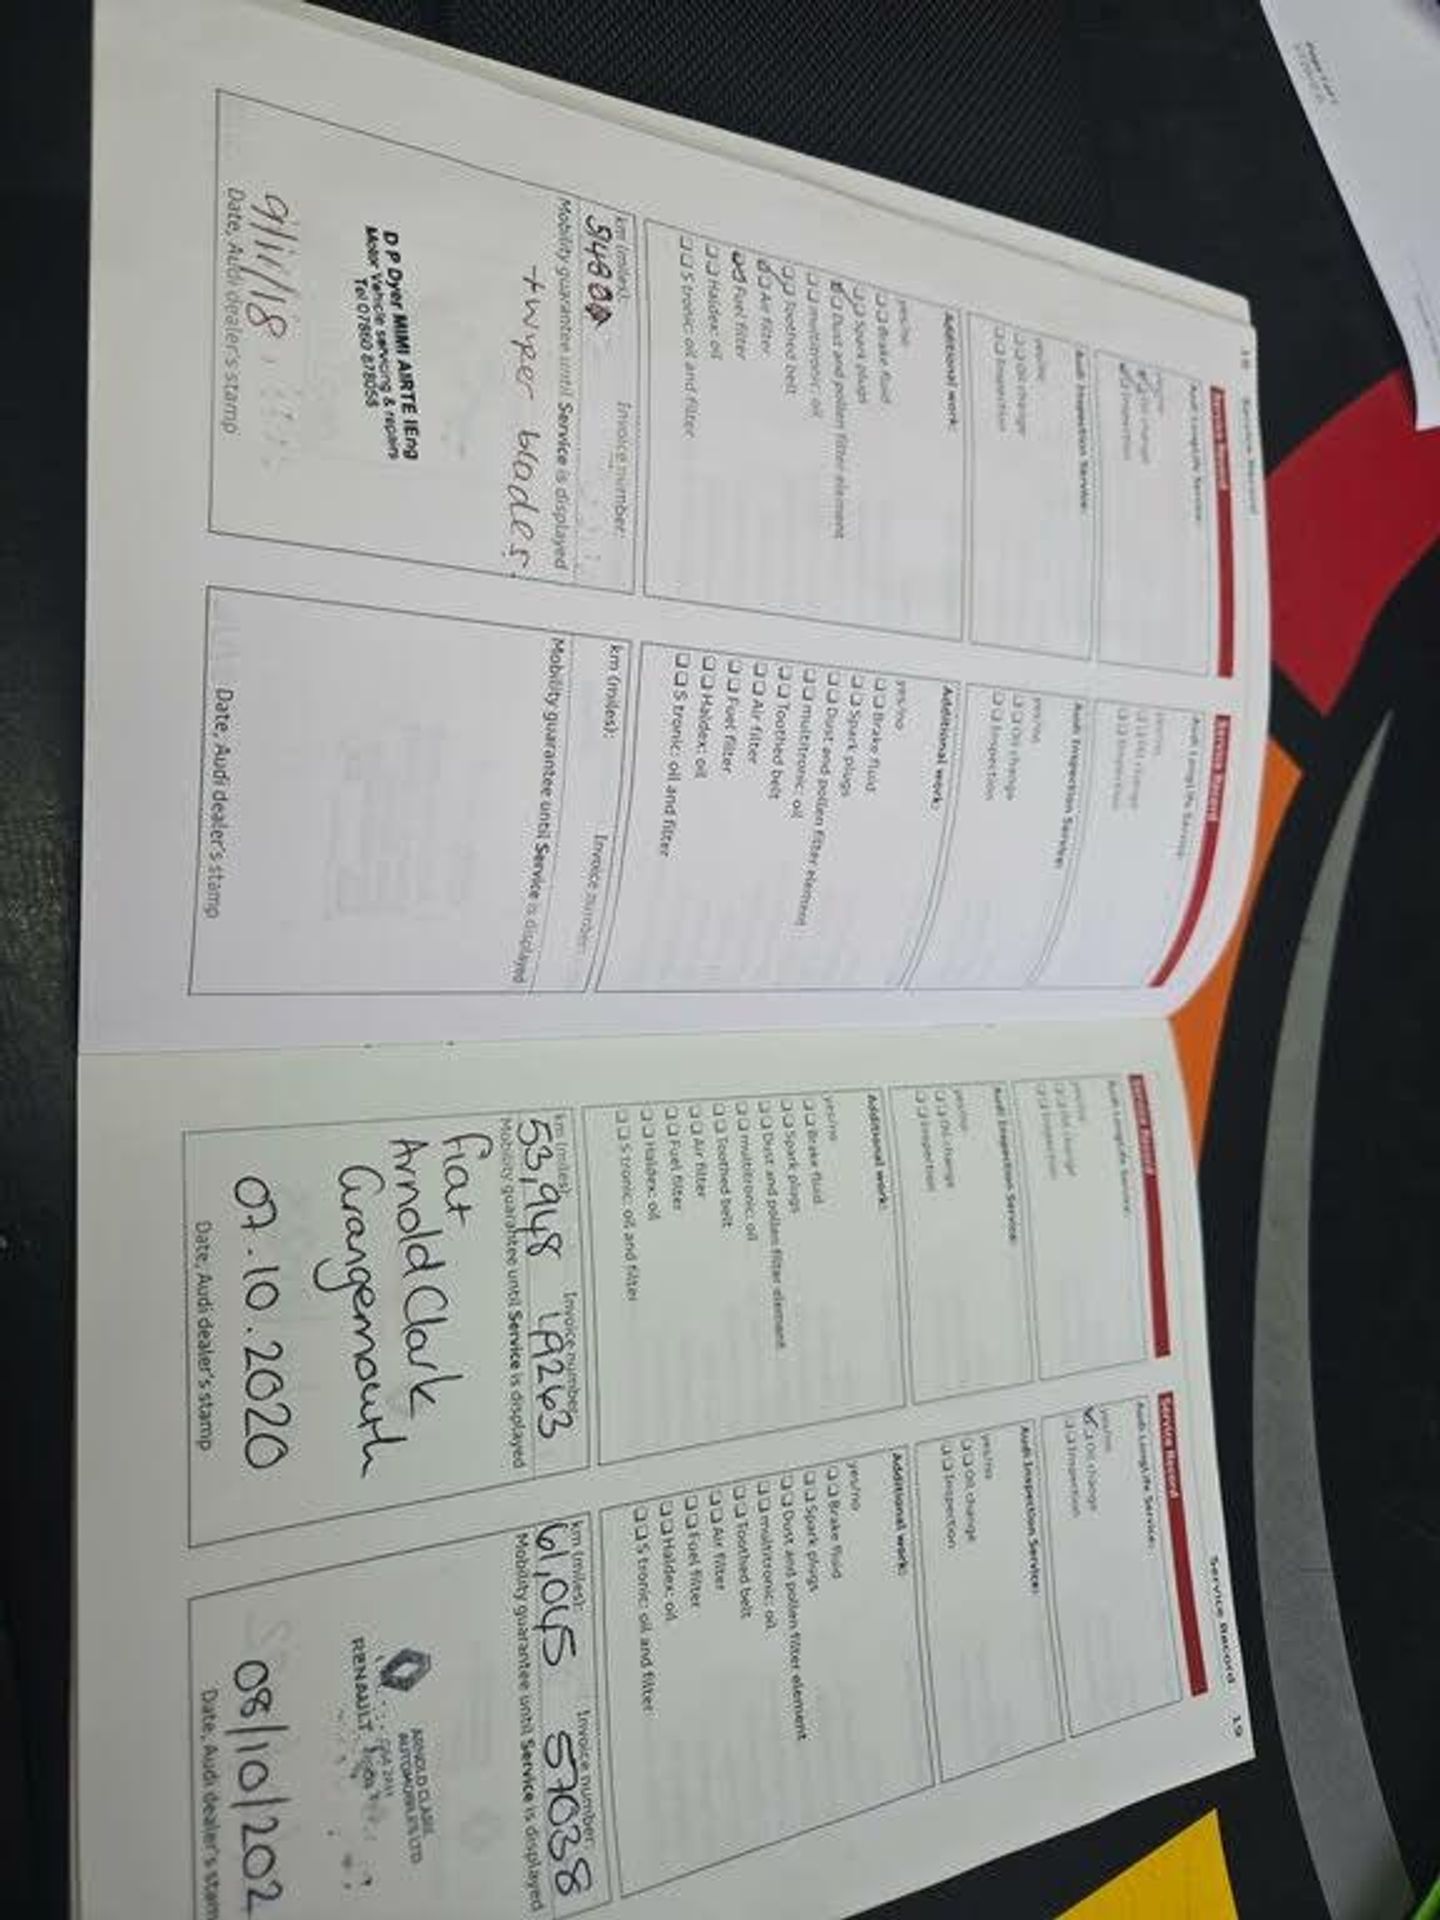 18 Service Record
Service Record
Audi LongLife Service:
yes/no
Oil change
Inspection
Audi Inspection Service:
yes/no
Oil change
Inspection
Additional work:
yes/no
Brake fluid
Spark plugs
Dust and pollen filter element
multitronic: oil
Toothed belt
Air filter
Fuel filter
Haldex: oil
S tronic: oil and filter
km (miles): Invoice number:
Mobility guarantee until Service is displayed
+ wiper blades.
D P Dyer MIMI AIRTE IEng
Motor Vehicle servicing & repairs
Tel 07860 878058
9/11/18
Date, Audi dealer's stamp
Service Record
Audi LongLife Service:
yes/no
Oil change
Inspection
Audi Inspection Service:
yes/no
Oil change
Inspection
Additional work:
yes/no
Brake fluid
Spark plugs
Dust and pollen filter element
multitronic: oil
Toothed belt
Air filter
Fuel filter
Haldex: oil
S tronic: oil and filter
km (miles): Invoice number:
Mobility guarantee until Service is displayed
Date, Audi dealer's stamp
Service Record
Audi LongLife Service:
yes/no
Oil change
Inspection
Audi Inspection Service:
yes/no
Oil change
Inspection
Additional work:
yes/no
Brake fluid
Spark plugs
Dust and pollen filter element
multitronic: oil
Toothed belt
Air filter
Fuel filter
Haldex: oil
S tronic: oil and filter
km (miles): Invoice number:
53,948 19263
Mobility guarantee until Service is displayed
fiat
Arnold Clark
Grangemouth
07.10.2020
Date, Audi dealer's stamp
Service Record 19
Service Record
Audi LongLife Service:
yes/no
Oil change
Inspection
Audi Inspection Service:
yes/no
Oil change
Inspection
Additional work:
yes/no
Brake fluid
Spark plugs
Dust and pollen filter element
multitronic: oil
Toothed belt
Air filter
Fuel filter
Haldex: oil
S tronic: oil and filter
km (miles): Invoice number:
61,045 57038
Mobility guarantee until Service is displayed
ARNOLD CLARK
AUTOMOBILES LTD
RENAULT
08/10/202
Date, Audi dealer's stam